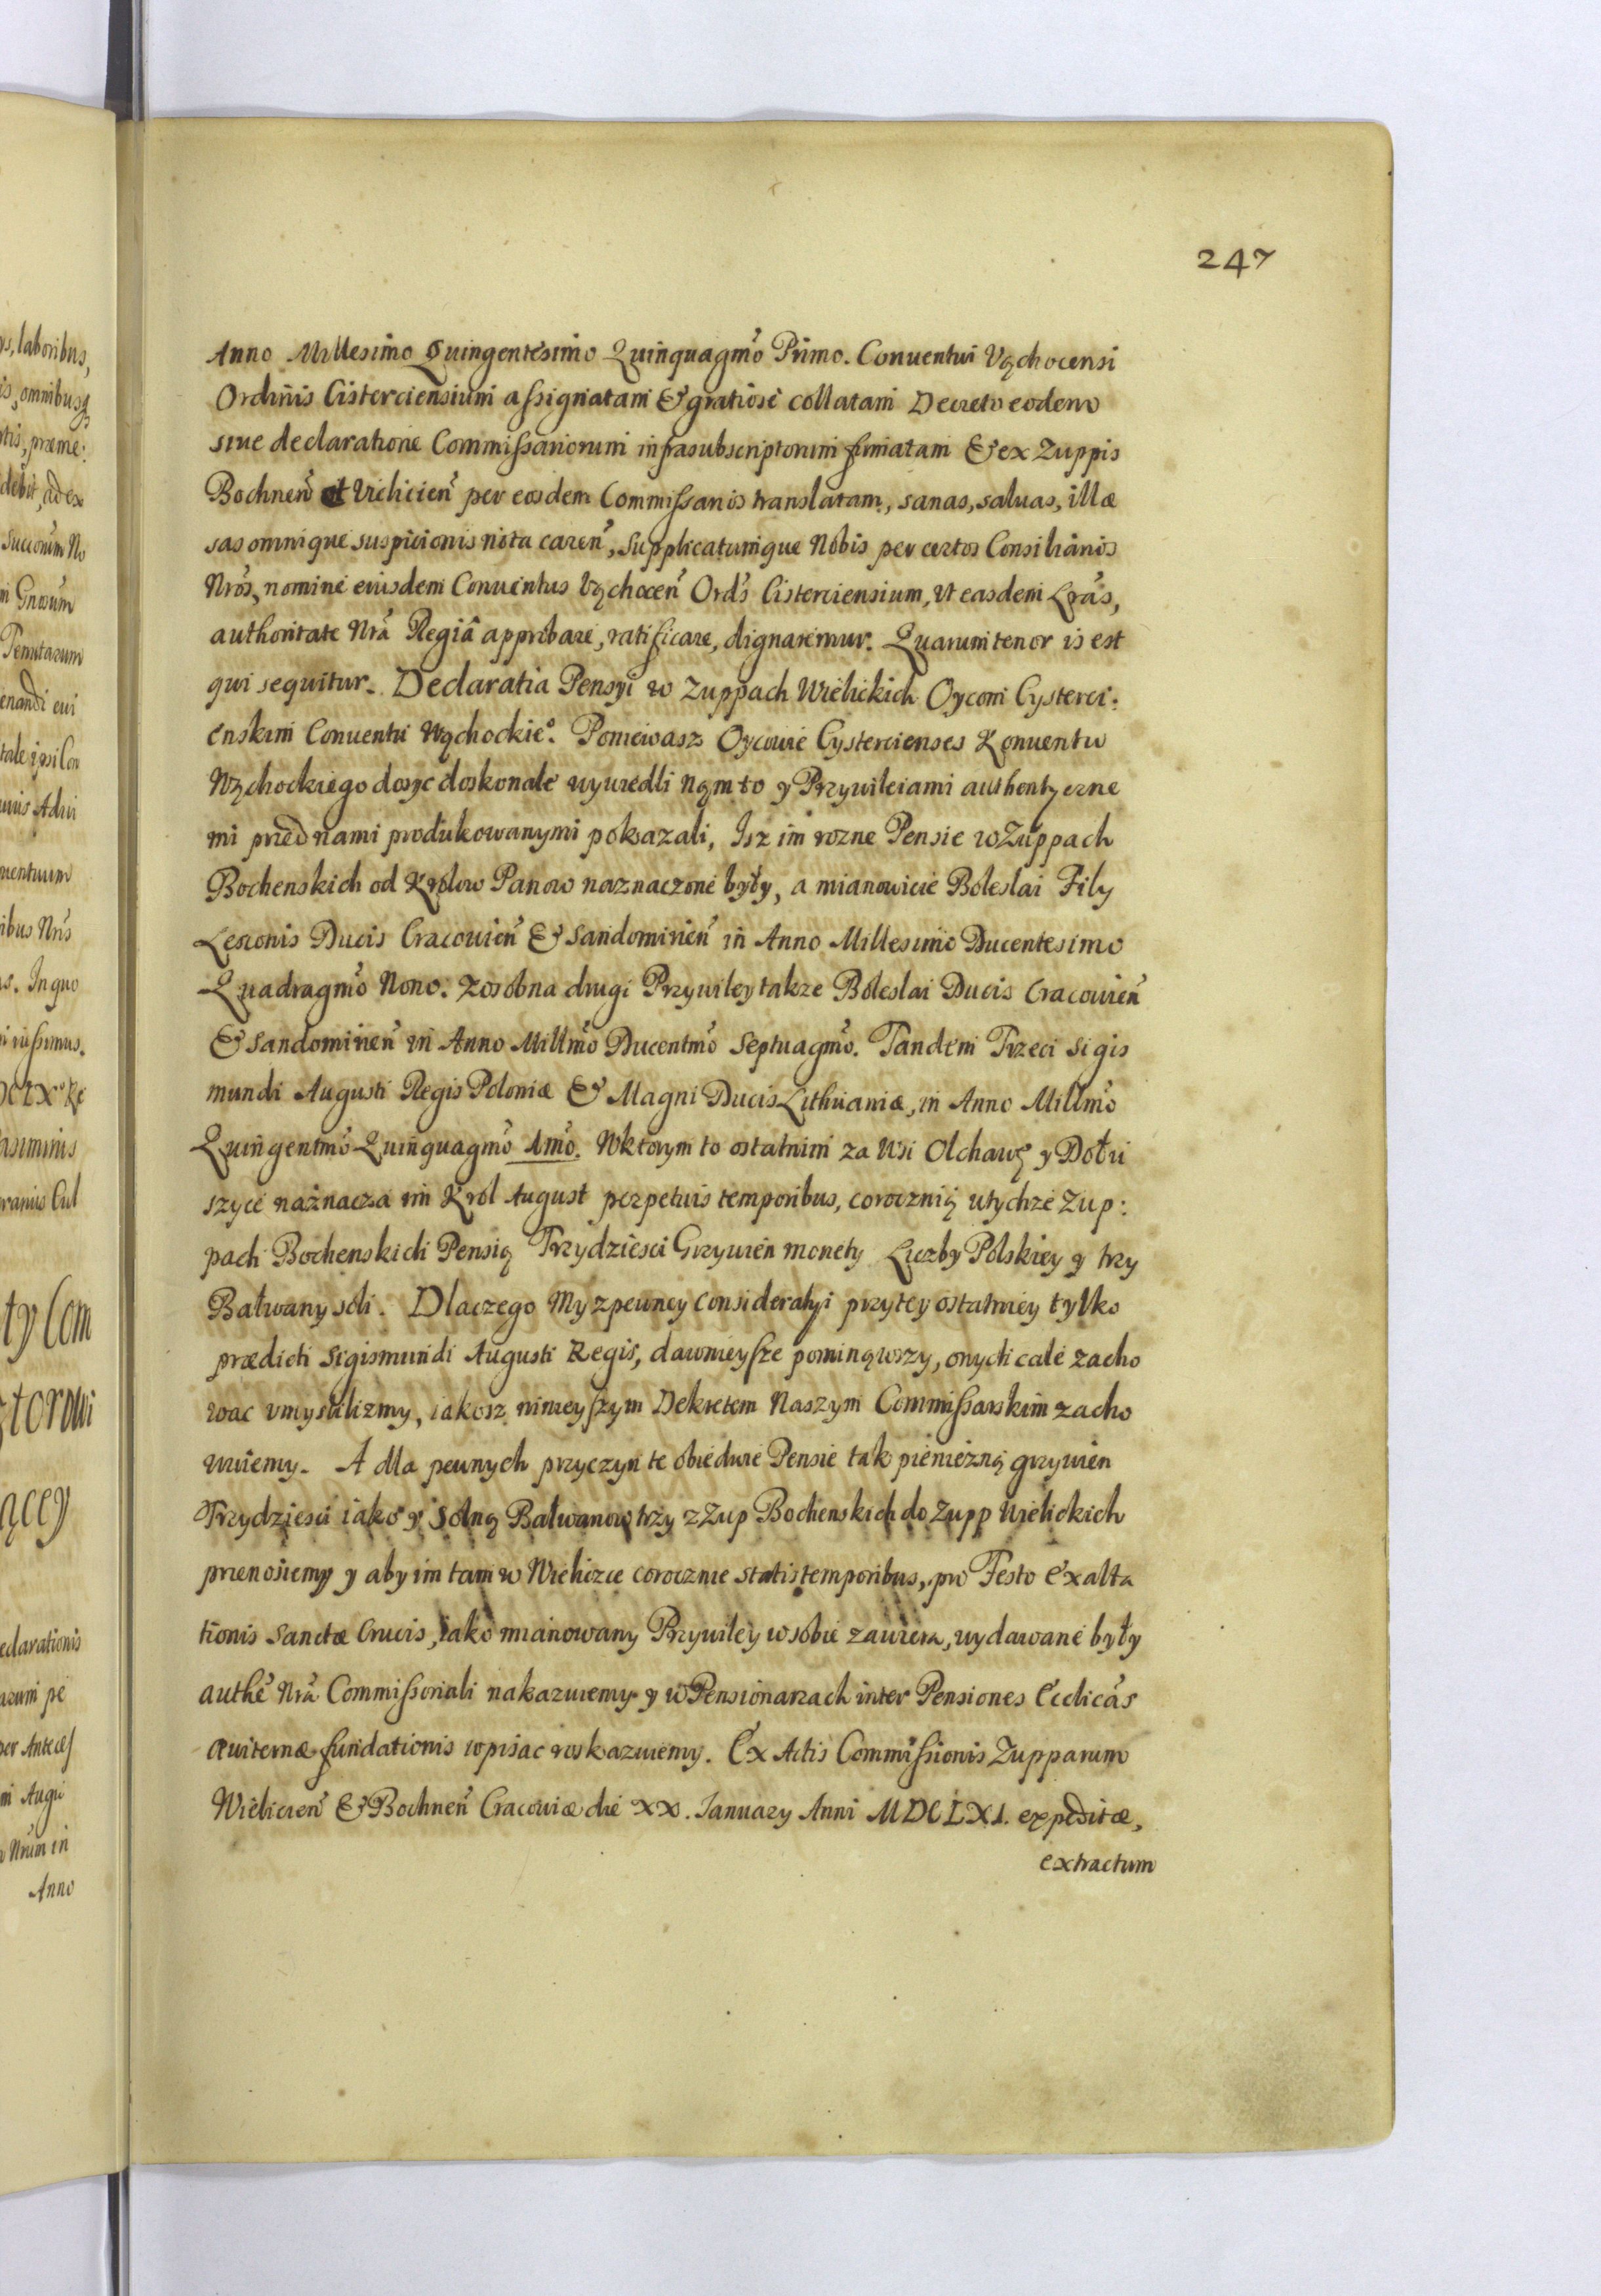 247
Anno Millesimo Quingentesimo Quinquagm̃o Primo. Conuentui Vąchocensi
Ordinis Cisterciensium assignatam & gratiose collatam Decreto eodem
siue declaratione Commissariorum infrasubscriptorum firmatam & ex Zuppis
Bochneñ et Vielicień per eosdem Commissarios translatam, sanas, saluas, illæ
sas omnique suspicionis nota careñ, Supplicatumque Nobis per certos Consiliarios
Nrõs, nomine eiusdem Conuentus Vąchoceñ Ord̃s Cisterciensium, Vt easdem Lrãs,
authoritate Nrã Regiâ approbare, ratificare, dignaremur. Quarum tenor is est
qui sequitur. Declaratia Pensyi w Zuppach Wielickich Oycom Cysterci:
enskim Conuentu Wąchockie͠o. Poniewasz Oycowie Cystercienses Konuentu
Wąchockiego dosyc doskonale wywiedli nąm to y Przywileiami authentyczne
mi przed nami produkowanymi pokazali, Isz im rozne Pensie w Zuppach
Bochenskich od Krolow Panow naznaczone były, a mianowicie Boleslai Fily
Lesconis Ducis Cracouień & Sandomirień in Anno Millesimo Ducentesimo
Quadragm̃o Nono. Zosobna drugi Przywiley takze Boleslai Ducis Cracouień
& Sandomirień in Anno Millm̃o Ducentm̃o Septuagm̃o. Tandem Trzeci Sigis
mundi Augusti Regis Poloniæ & Magni Ducis Lithuaniæ, in Anno Millm̃o
Quingentm̃o Quinquagm̃o 1mõ. Wktorym to ostatnim za Wsi Olchawę y Dołu
szyce naznacza im Krol August perpetuis temporibus, corocznią wtychze Zup:
pach Bochenskich Pensią Trzydziesci Grzywien monety Liczby Polskiey y trzy
Bałwany soli. Dlaczego My zpewney Consideratyi przytey ostatniey tylko
prædicti Sigismundi Augusti Regis, dawnieysze pominąwszy, onych cale zacho
wac vmyslilizmy, iakosz ninieyszym Dekretem Naszym Commissarskim zacho
wuiemy. A dla pewnych przyczyn te obiedwie Pensie tak pienieżną grzywien
Trzydziesci iako y Solną Bałwanow trzy z Zup Bochenskich do Zupp Wielickich
przenosiemy y aby im tam w Wieliczce corocznie statis temporibus, pro Festo Exalta
tionis Sanctæ Crucis, iako mianowany Przywiley wsobie zawiera, wydawane były
authẽ Nrã Commissoriali nakazuiemy y w Pensionarzach inter Pensiones Ecclicãs
æuiternæ fundationis wpisac roskazuiemy. Ex Actis Commissionis Zupparum
Wielicień & Bochneñ Cracouiæ die XX. January Anni MDCLXI. expeditæ,
extractum